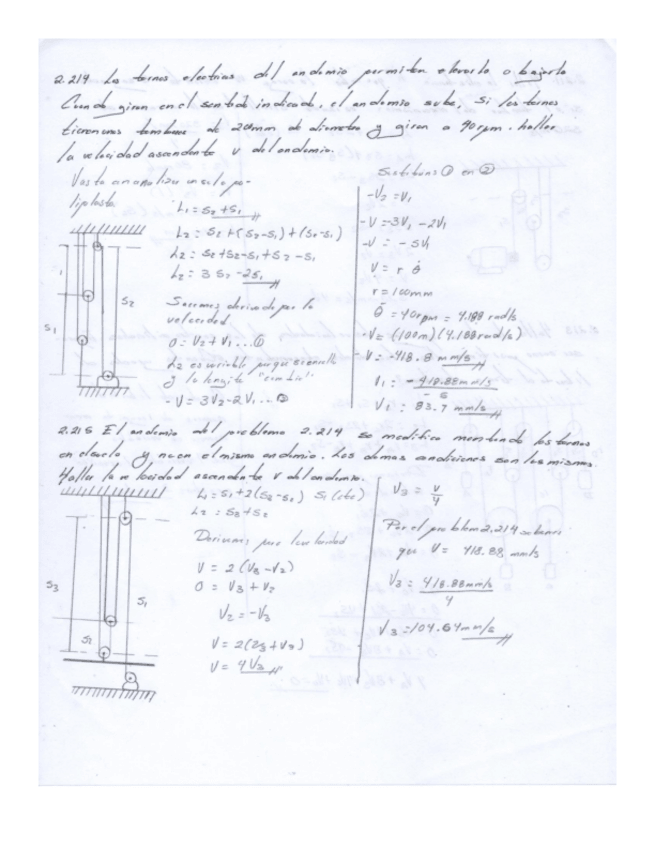 2.214 Los tornos electricos del andamio permiten elevarlo o bajarlo
Cuando giran en el sentido indicado, el andamio sube, Si los tornos
tienen unos tambores de 200mm de diametro y giran a 40rpm. hallar
la velocidad ascendente v del andamio.
Vasta analizar un solo po-
lipasto.
L₁=S₂+S₁
L₂= S₂+(S₂-S₁)+(S₂-S₁)
L₂= S₂+S₂-S₁+S₂-S₁
L₂= 3S₂-2S₁
Sacamos derivada por la
velocidad
0=V₂+V₁...①
L₂ es variable porque
y la longitud "cambia".
-V=3V₂-2V₁...②
S₁
S₂
Sustituimos ① en ②
-V₂=V₁
-V=-3V₁-2V₁
-V=-5V₁
V=r θ̇
r=100mm
θ̇=40rpm=4.188rad/s
-V=(100m)(4.188rad/s)
V=-418.8mm/s
V₁=-418.88mm/s
-5
V₂=83.7mm/s
2.215 El andamio del problema 2.214 se modifica montando los tornos
en el suelo y no en el mismo andamio. Las demas condiciones son las mismas.
Hallar la velocidad ascendente v del andamio.
S₃
S₁
S₂
L₁=S₁+2(S₃-S₂) S₁(cte)
L₂=S₃+S₂
Derivamos para la velocidad
V=2(V₃-V₂)
0=V₃+V₂
V₂=-V₃
V=2(V₃+V₃)
V=4V₃
V₃=V
4
Por el problema 2.214 sabemos
que V= 418.88mm/s
V₃=418.88mm/s
4
V₃=104.64mm/s